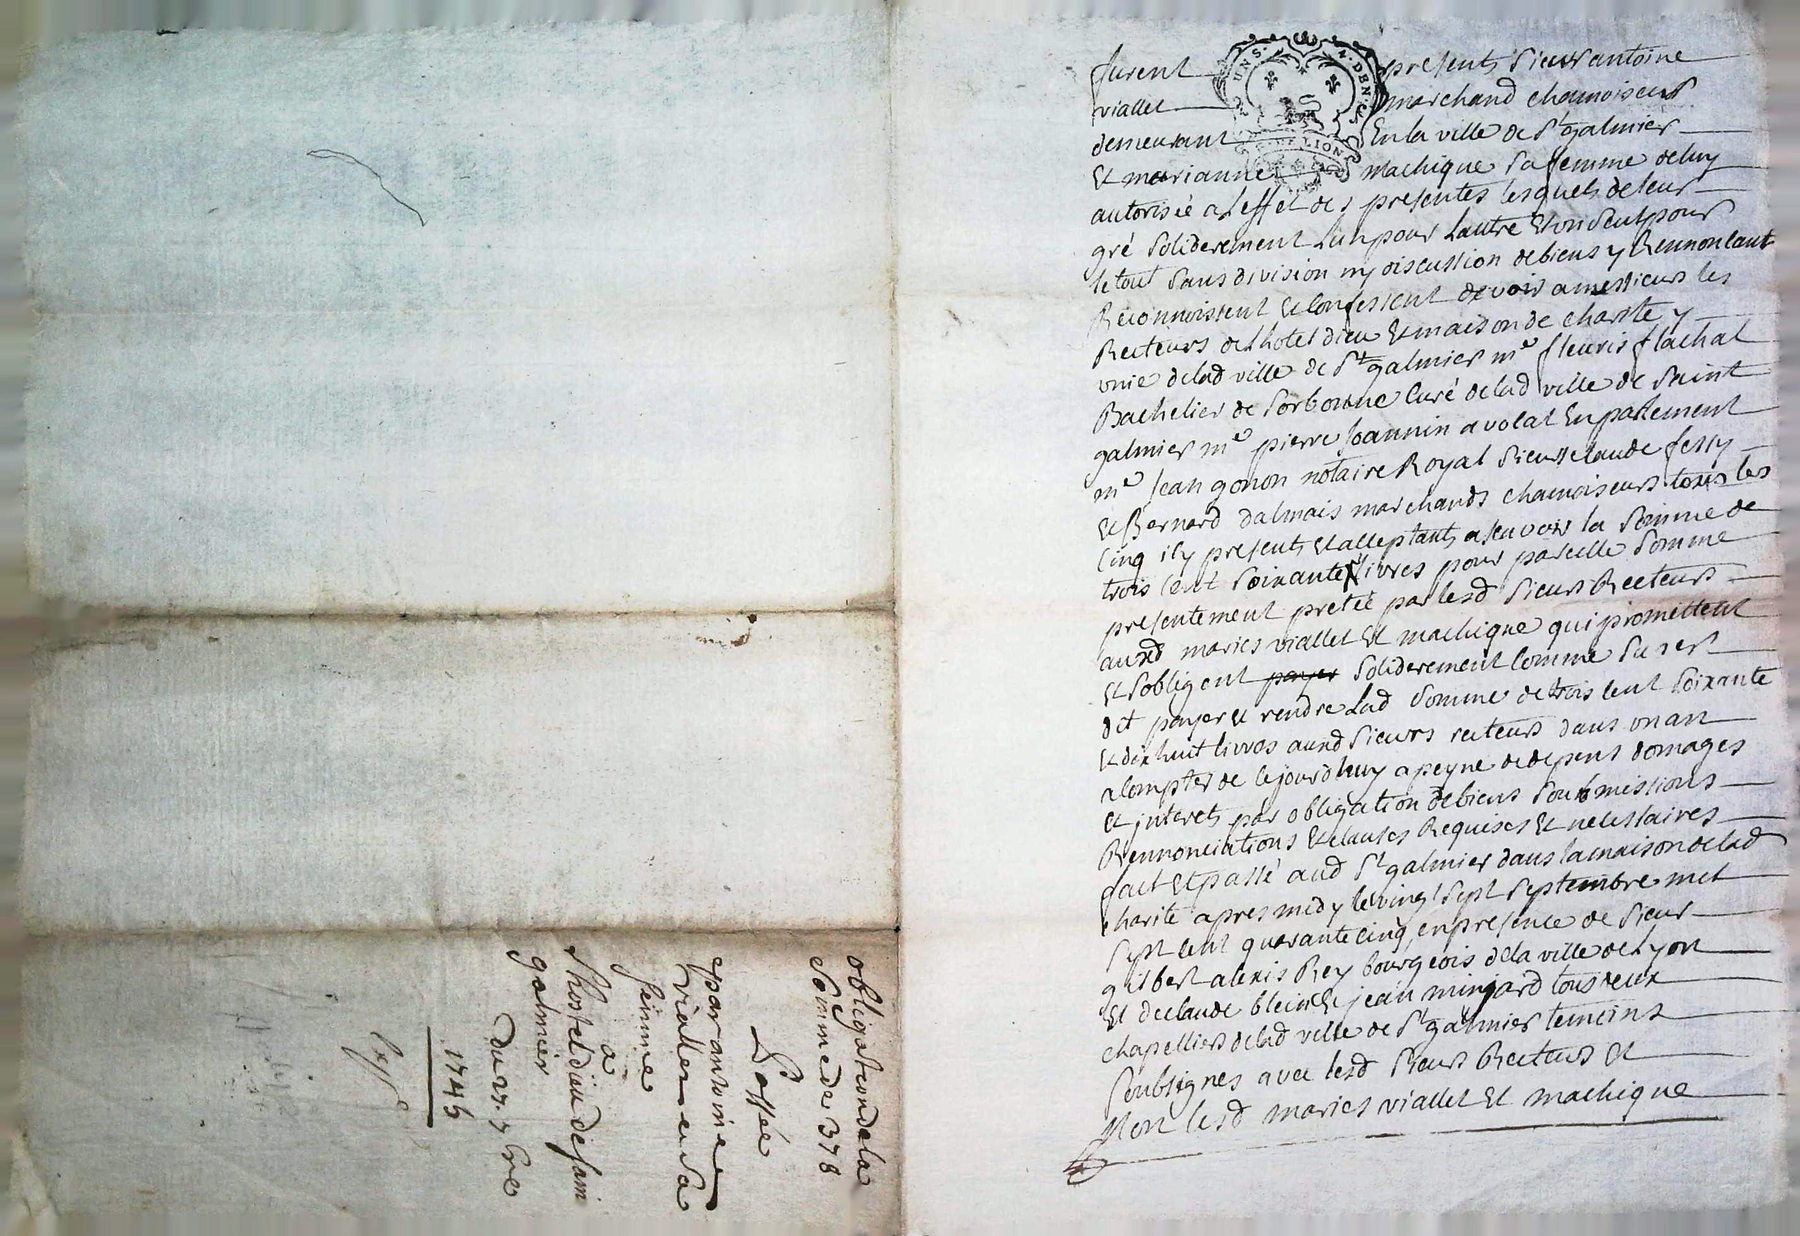 furent presents Sieur antoine
viallet marchand chamoiseur
demeurant En la ville de St galmier
Et marianne machique Sa femme de luy
autorisée a Leffet des presentes lesquels de leur
gré Soliderement Lun pour Lautre Et un Seul pour
le tout Sans division ny discussion de biens y Rennoncant
Reconnoissent Et Confessent devoir a messieurs les
Recteurs de Lhotel dieu Et maison de charite y
unie de lad ville de St galmier me fleuris flachat
Bachelier de Sorbonne Curé de lad ville de Saint
galmier me pierre Joannin avocat En parlement
me Jean gonon notaire Royal Sieurs claude ferry
Et Bernard dalmais marchands chamoiseurs tous les
Cinq icy presents Et acceptants a scavoir la Somme de
trois Cent Soixante livres pour pareille Somme
presentement pretée par lesd Sieurs Recteurs
auxd mariés viallet Et machique qui promettent
Et Sobligent payer Soliderement Comme Sus est
dit payer et rendre Lad Somme de trois Cent Soixante
Et dix huit livres auxd Sieurs recteurs dans un an
a Compter de Cejourdhuy a peyne de depens domages
et interets par obligation de biens Soubmissions
Rennonciations Et clauses Requises Et necessaires
fait Et passé aud St galmier dans la maison de lad
charité apres midy le vingt Sept Septembre mil
Sept Cent quarante Cinq, en presence de Sieur
gilbert alexis Rey bourgeois de la ville de Lyon
Et de claude blein Et jean minjard tous deux
chapelliers de lad ville de St galmier temoins
Soubsignes avec lesd Sieurs Recteurs Et
Non lesd mariés viallet Et machique
UNS. 4. DEN.
DE LION
obligation de la
Somme de 378
Passée
par antoine
viallet et Sa
femme
a
Lhostel dieu de Saint
galmier
du 27. 7bre
1745